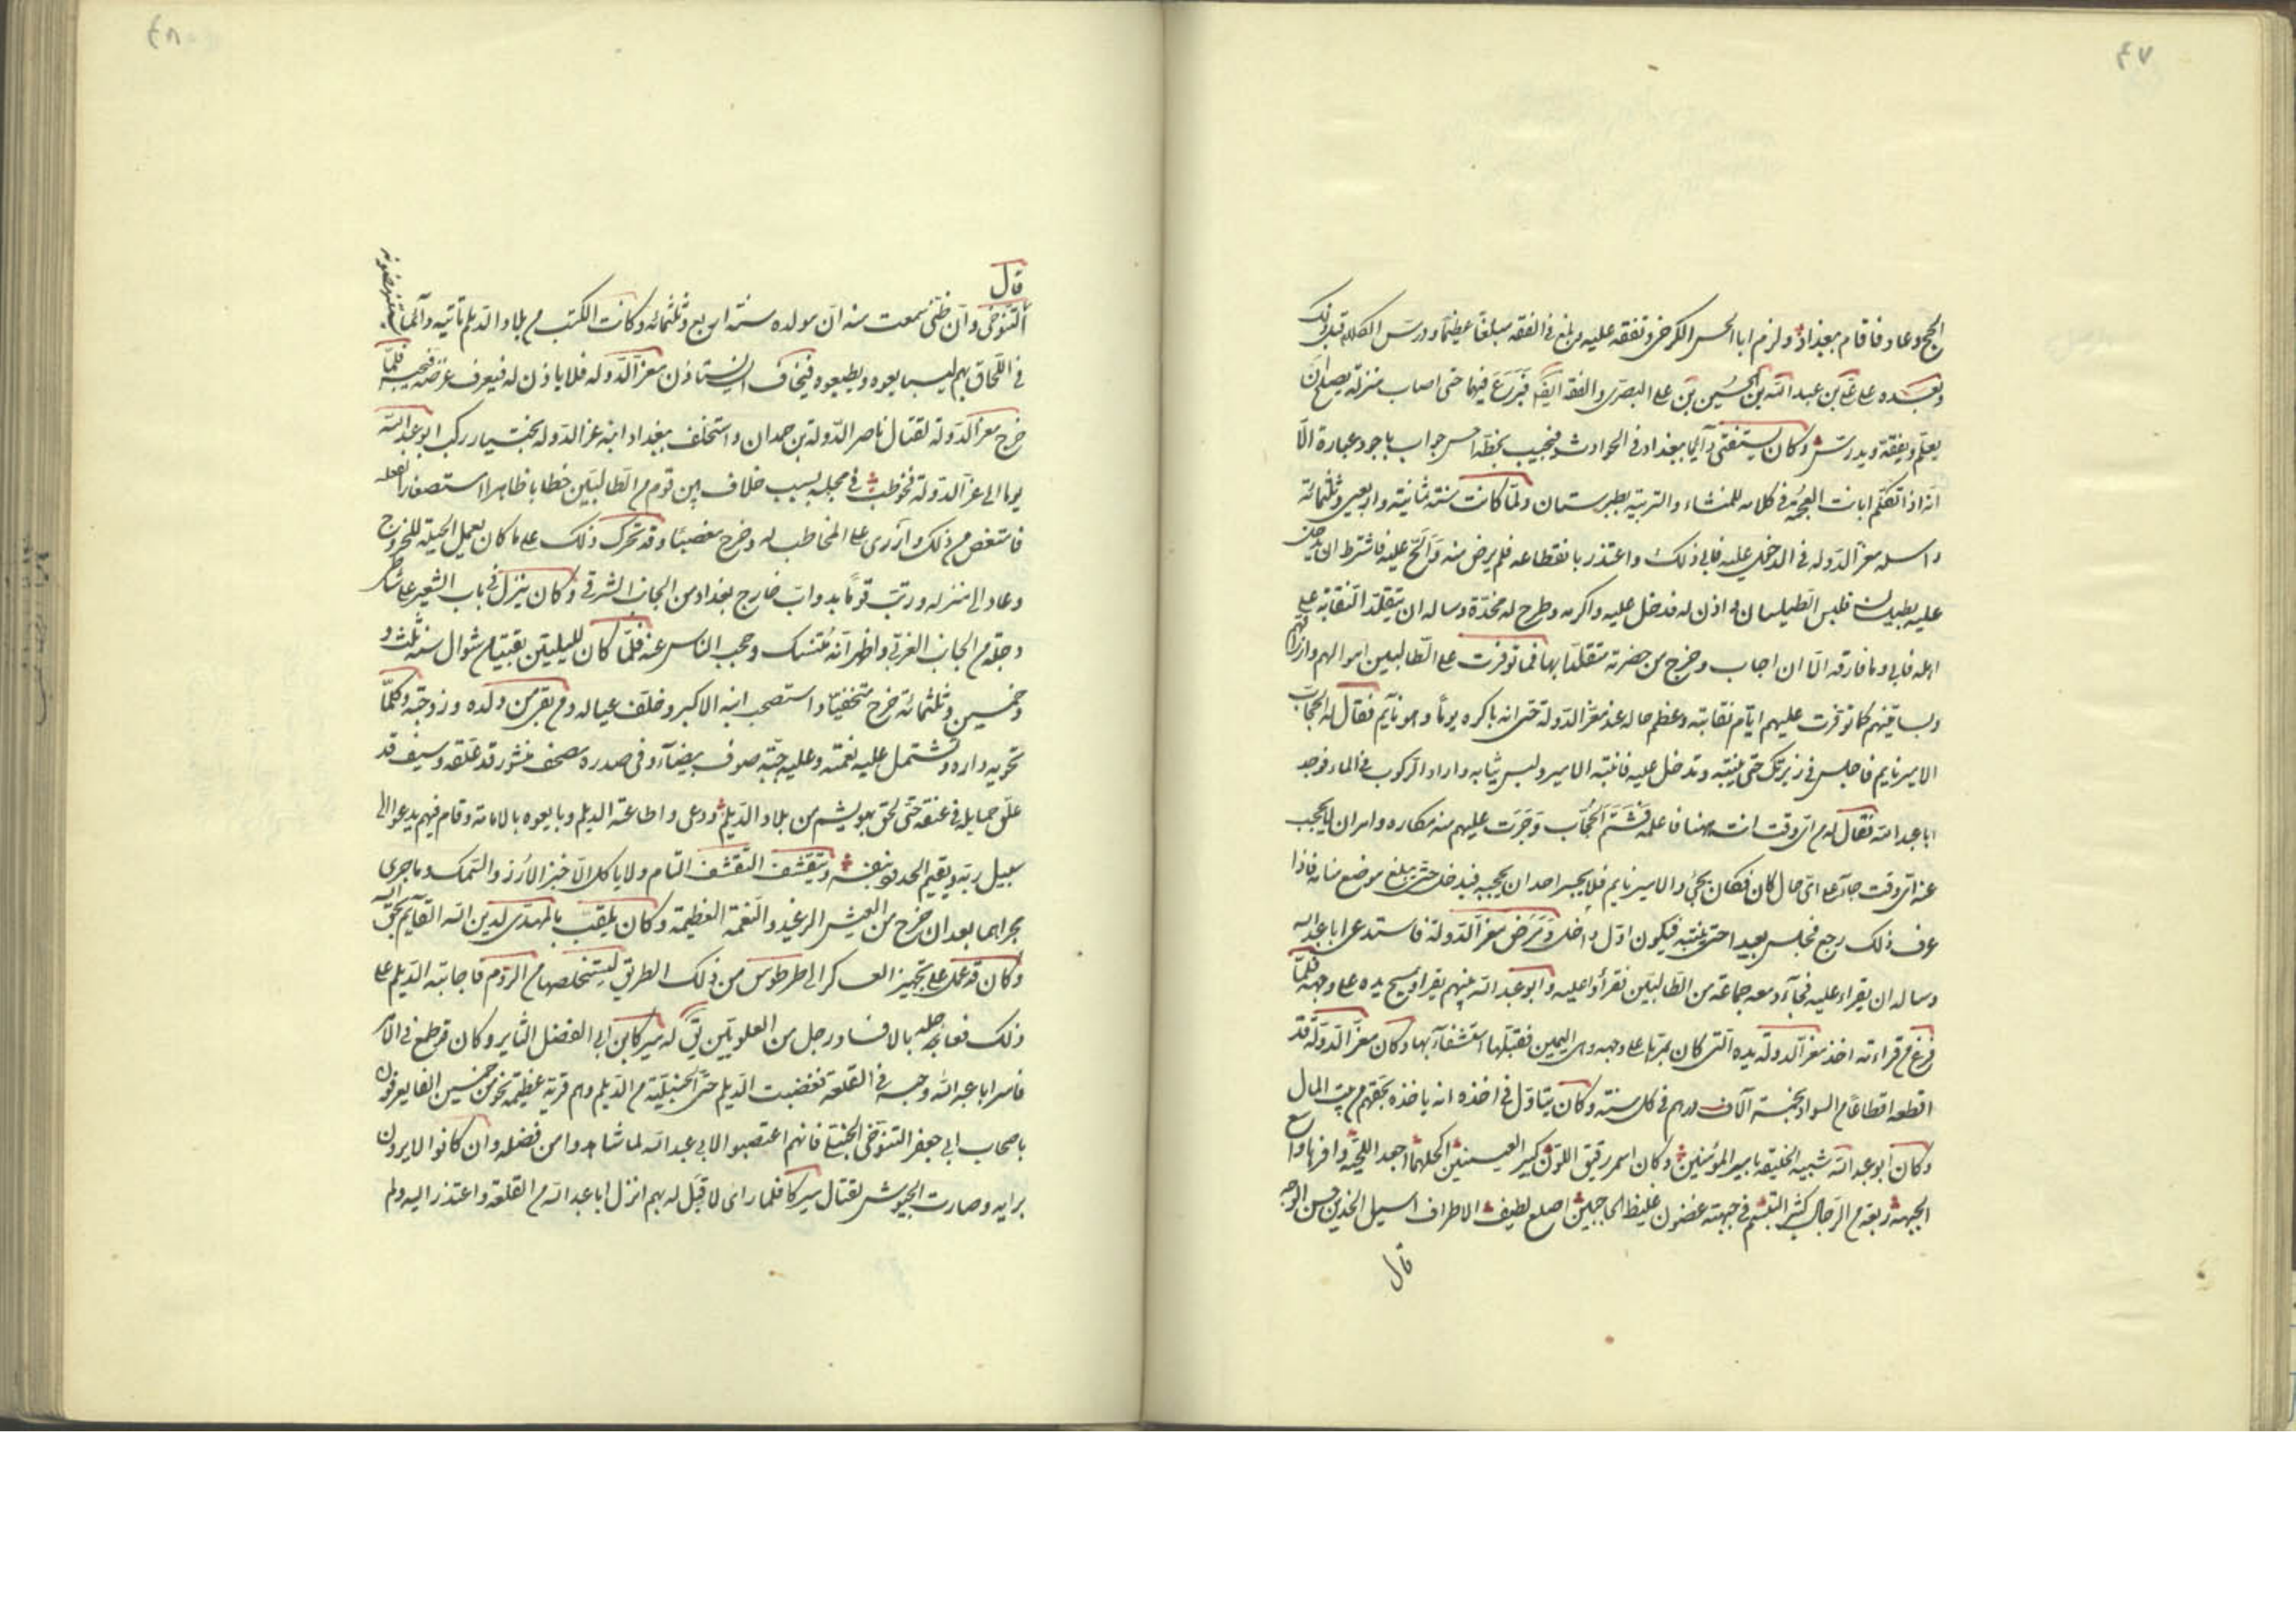 ٤٧
الحج وعاد فاقام ببغداد ولزم ابا الحسن الكرخى وتفقه عليه وبلغ فى الفقه مبلغا عظيما ودرس الكلام قبل ذلك
وبعده على على بن عبد الله بن الحسين بن على البصرى والفقه ايضا فبرع فيهما حتى اصاب منزلة يصلح ان
يعلم ويفقه ويدرس وكان يستفتى دائما ببغداد فى الحوادث فيجيب بخطه احسن جواب باجود عبارة الا
انه اذا تكلم ابانت العجمة فى كلامه للمنشاء والتربية بطبرستان ولما كانت سنة ثمانية واربعين وثلثمائة
راسله معز الدولة فى الدخول عليه فابى ذلك واعتذر بانقطاعه فلم يرض منه والح عليه فاشترط ان يدخل
عليه بطيلسان فلبس الطيلسان واذن له فدخل عليه واكرمه وطرح له مخدة وساله ان يتقلد النقابة على
اهله فابى وما فارقه الا ان اجاب وخرج من حضرته متقلدا بها فما توفرت على الطالبيين اموالهم وارزاقهم
وبساتينهم كما توفرت عليهم ايام نقابته وعظم حاله عند معز الدولة حتى انه باكره يوما وهو نايم فقال له الحجاب
الامير نايم فاجلس فى زبزبك حتى ينتبه وتدخل عليه فانتبه الامير ولبس ثيابه واراد الركوب فى الماء فوجد
ابا عبد الله فقال له من اى وقت انت ههنا فاعلمه فشتم الحجاب وجرت عليهم منه مكاره وامر ان لا يحجب
عنه اى وقت جاء على اى حال كان فكان يجئ والامير نايم فلا يجسر احد ان يحجبه فيدخل حتى يبلغ موضع منامه فاذا
عرف ذلك رجع فجلس بعيدا حتى ينتبه فيكون اول داخل ومرض معز الدولة فاستدعى ابا عبد الله
وساله ان يقراء عليه فجاء ومعه جماعة من الطالبيين فقرأوا عليه وابو عبد الله بينهم يقرا ويمسح يده على وجهه فلما
فرغ من قراءته اخذ معز الدولة يده التى كان يمرها على وجهه وهى اليمين فقبلها استشفاء بها وكان معز الدولة قد
اقطعه اقطاعا من السواد بخمسة آلاف درهم فى كل سنة وكان يتاول فى اخذه انه ياخذه بحقهم من بيت المال
وكان ابو عبد الله شبيه الخليقة بامير المؤمنين وكان اسمر رقيق اللون كبير العينين اكحلهما اجعد اللحية وافرها واسع
الجبهة ربعة من الرجال كثير التبسم فى جبهته غضون غليظ الحاجبين اصلع لطيف الاطراف اسيل الخدين حسن الوجه
قال
٤٨
قال
التنوخى وان ظنى سمعت منه ان مولده سنة اربع وثلثمائة وكانت الكتب من بلاد الديلم تاتيه دائما
فى اللحاق بهم ليبايعوه ويطيعوه فيخاف ان يستاذن معز الدولة فلا ياذن له فيعرف غرضه فيحبسه فلما
خرج معز الدولة لقتال ناصر الدولة بن حمدان واستخلف ببغداد ابنه عز الدولة بختيار ركب ابو عبد الله
يوما الى عز الدولة فخوطب فى مجلسه بسبب خلاف بين قوم من الطالبيين خطابا ظاهرا استصغارا لفعله
فامتعض من ذلك وازرى على المخاطب له وخرج مغضبا وقد تحرك ذلك على ما كان يعمل الحيلة للخروج
وعاد الى منزله ورتب قوما بدواب خارج بغداد من الجانب الشرقى وكان ينزل فى باب الشعير على شاطئ
دجلة من الجانب الغربى واظهر انه متنسك وحجب الناس عنه فلما كان لليلتين بقيتا من شوال سنة ثلث و
خمسين وثلثمائة خرج متخفيا واستصحب ابنه الاكبر وخلف عياله ومن بقى من ولده وزوجته وكلما
تحويه داره وتشتمل عليه نعمته وعليه جبة صوف بيضاء وفى صدره مصحف منشور قد علقه وسيف قد
علق حمايله فى عنقه حتى لحق بهوسم من بلاد الديلم ودعى واطاعته الديلم وبايعوه بالامامة وقام فيهم يدعو الى
سبيل ربه ويقيم الحدود بنفسه ويتقشف التقشف التام ولا ياكل الا خبز الارز والسمك وما جرى
مجراهما بعد ان خرج من العيش الرغيد والنعمة العظيمة وكان يلقب بالمهدى لدين الله القايم بحق الله
وكان قد عمل على تجهيز العسكر الى طرطوس من ذلك الطريق ليستخلصها من الروم فاجابته الديلم على
ذلك فعاجله بالافساد رجل من العلويين يق له ميركا بن ابى الفضل الثاير وكان قد طمع فى الامر
فاسر ابا عبد الله وحبسه فى القلعة فغضبت الديلم حتى الحنبلية من الديلم وهم قرية عظيمة نحو من خمسين الفا يعرفون
باصحاب ابى جعفر التنوخى الحنبلى فانهم اعتصبوا لابى عبد الله لما شاهدوا من فضله وان كانوا لا يرون
برايه وصارت الجيوش لقتال ميركا فلما راى لا قبل له بهم انزل ابا عبد الله من القلعة واعتذر اليه ولم